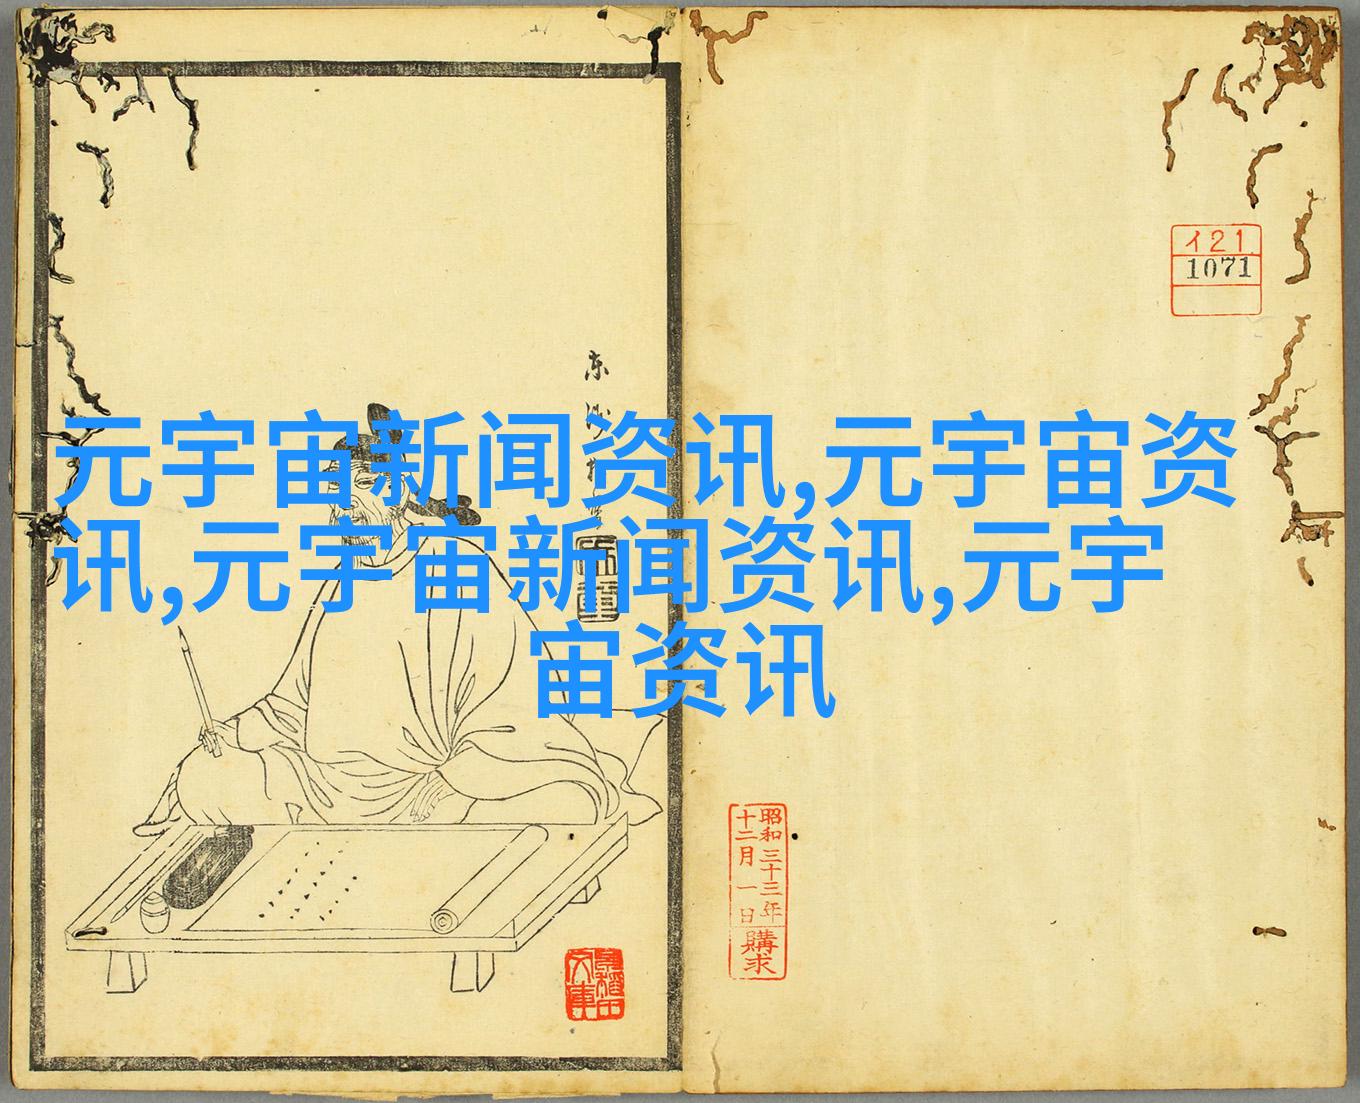 元宇宙新闻资讯,元宇宙资
讯,元宇宙新闻资讯,元宇
宙资讯
イ21
1071
昭和三十三年
十二月一日
購求
早稲田
文庫